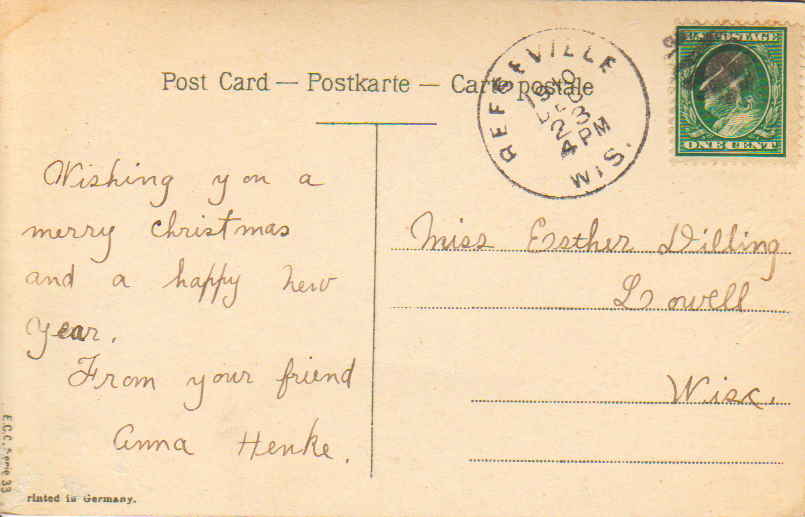 Post Card — Postkarte — Carte postale
REESEVILLE
1910
DEC
23
4 PM
WIS.
U.S. POSTAGE
ONE CENT
Wishing you a
merry Christmas
and a happy new
year.
From your friend
Anna Henke.
Miss Esther Dilling
Lowell
Wisc.
E.C.C. Serie 33
rinted in Germany.